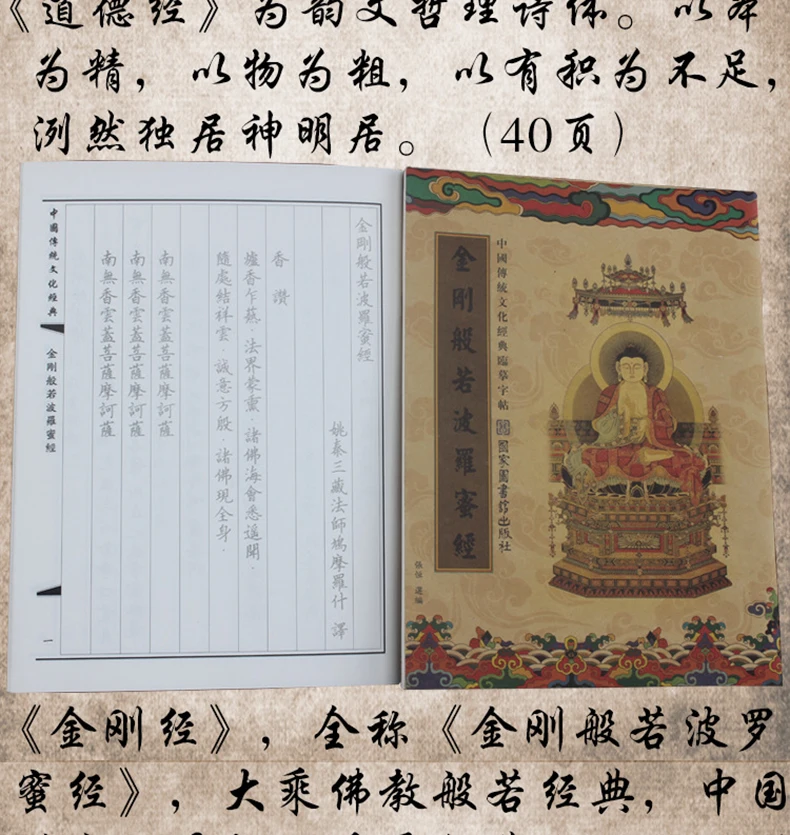 《道德经》为韵文哲理诗体。以本
为精，以物为粗，以有积为不足，
洌然独居神明居。（40页）
中國傳統文化經典
金剛般若波羅蜜經
一
金剛般若波羅蜜經
姚秦三藏法師鳩摩羅什 譯
香 讚
爐香乍爇．法界蒙熏．諸佛海會悉遥聞．
隨處結祥雲．誠意方殷．諸佛現全身．
南無香雲蓋菩薩摩訶薩
南無香雲蓋菩薩摩訶薩
南無香雲蓋菩薩摩訶薩
中國傳統文化經典臨摹字帖
國家圖書館出版社
金剛般若波羅蜜經
張恒 選編
《金刚经》，全称《金刚般若波罗
蜜经》，大乘佛教般若经典，中国